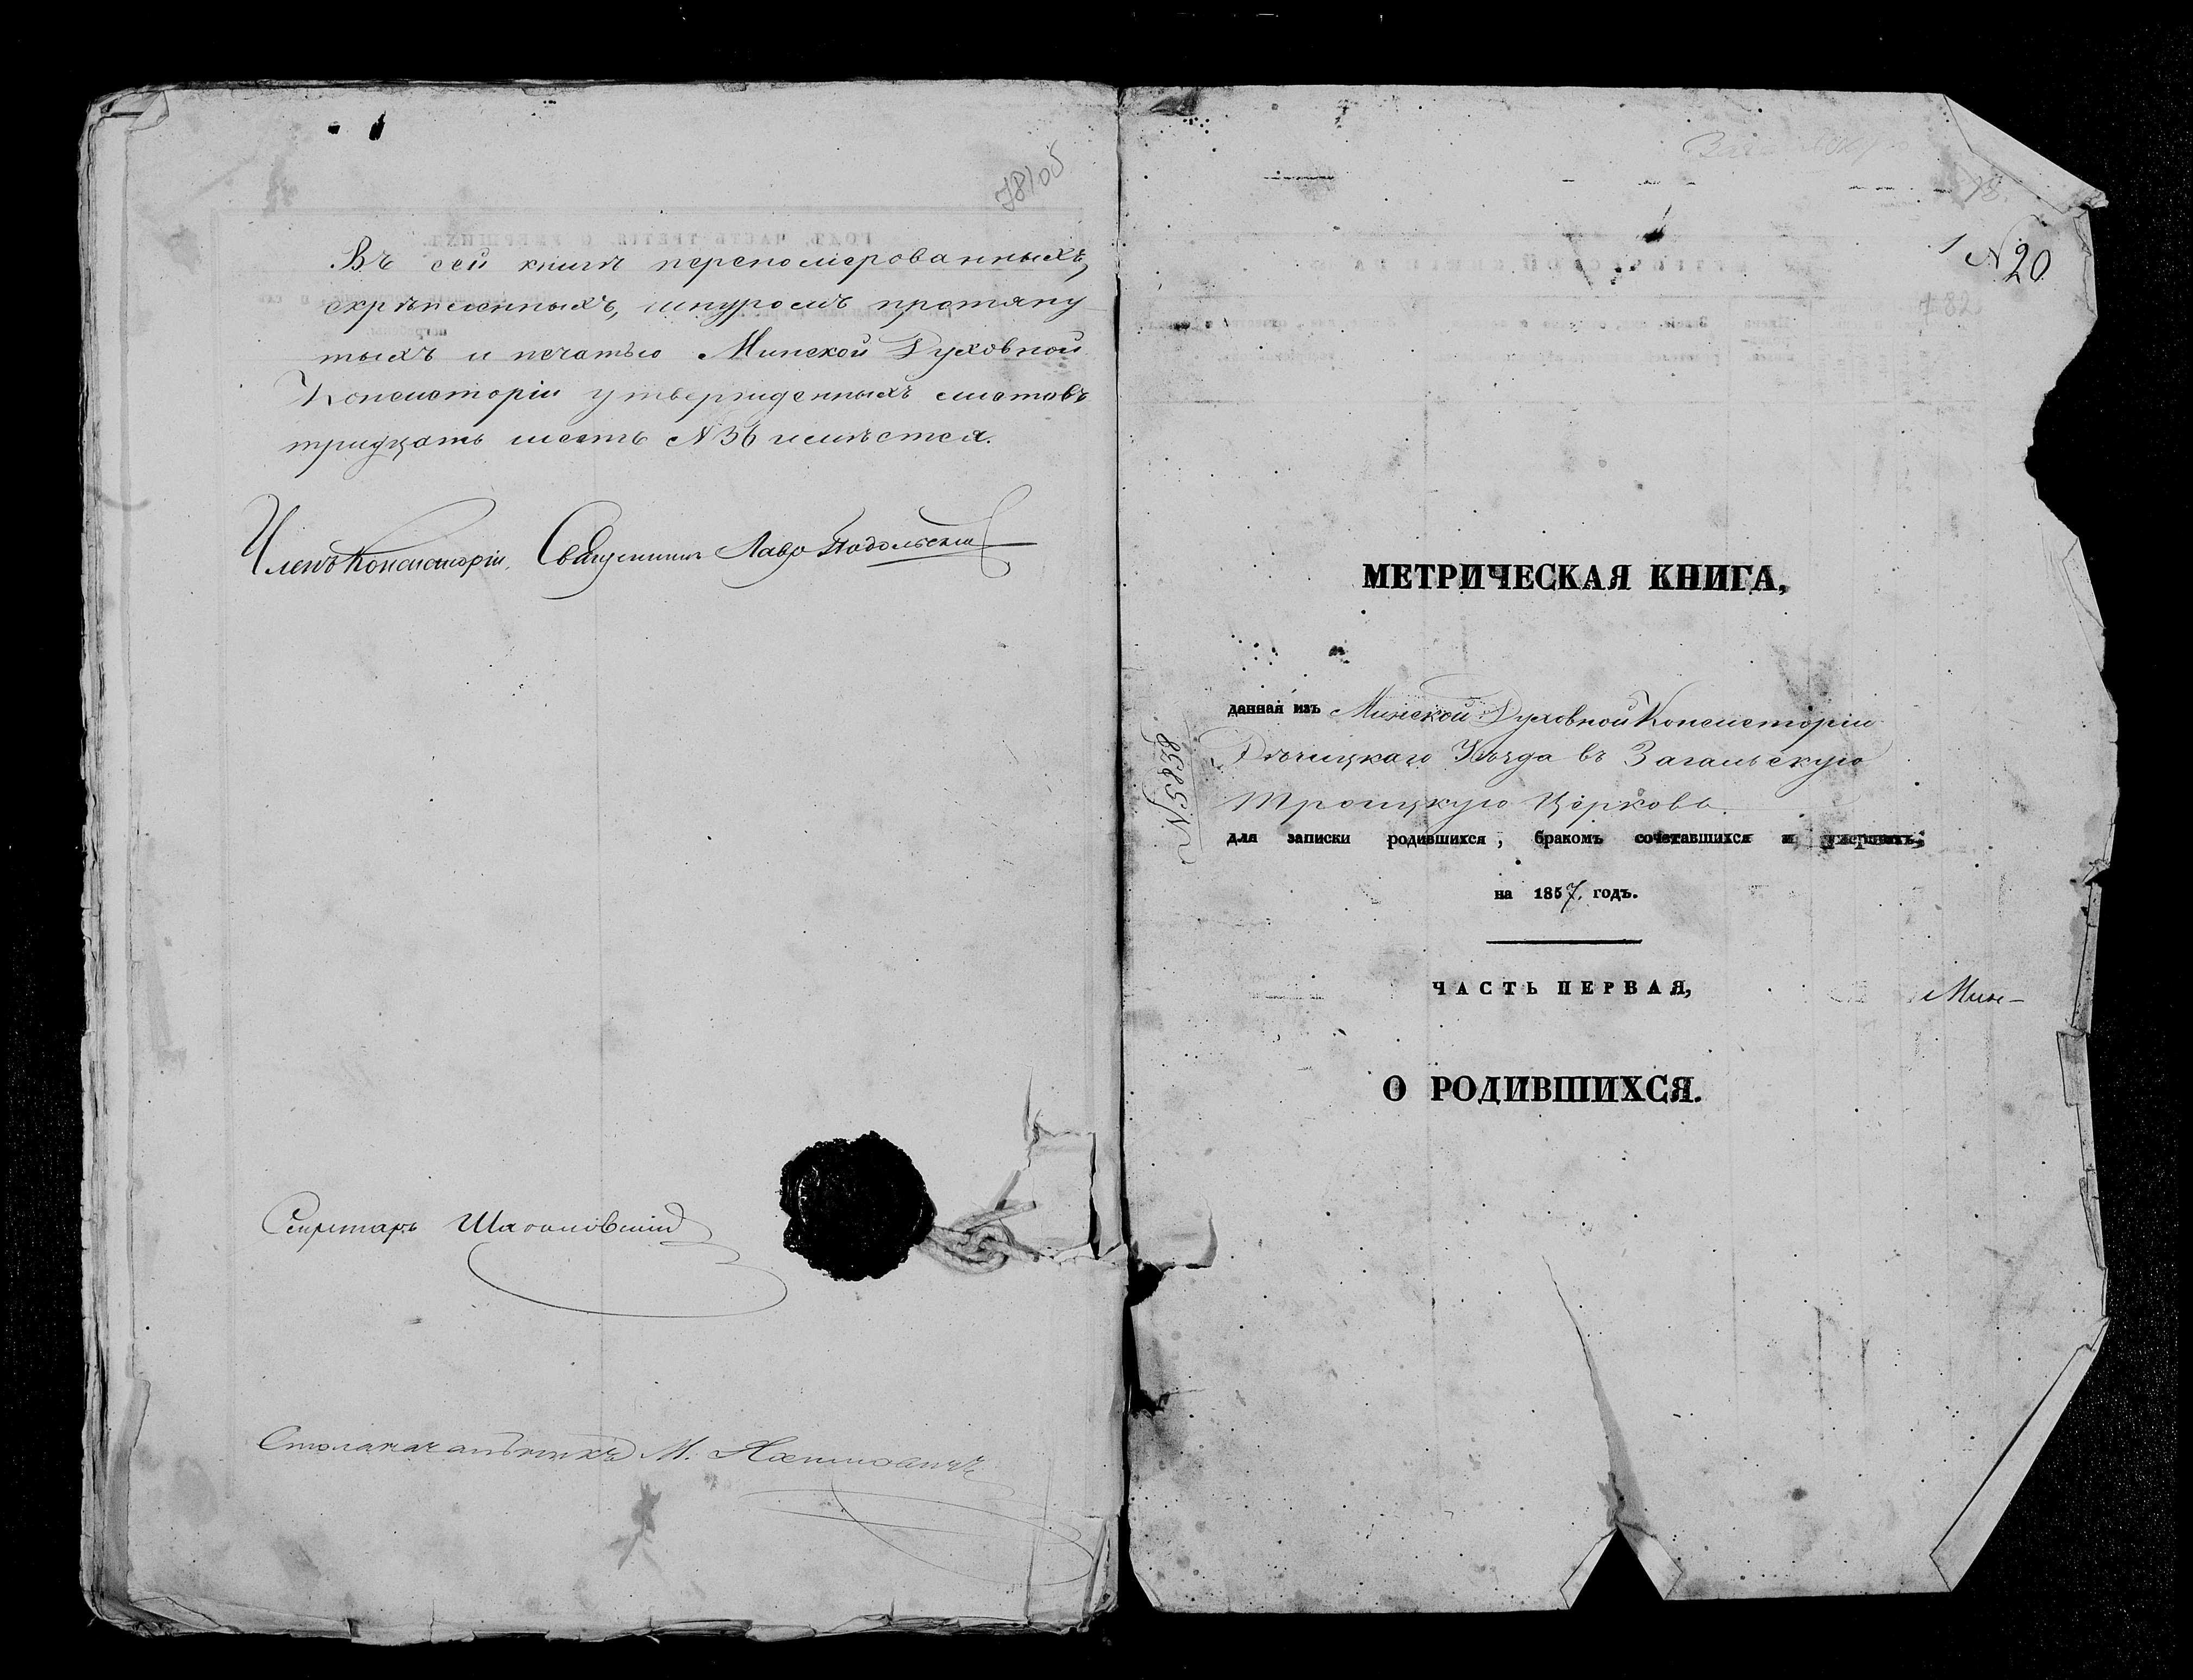 78/об
Въ сей книгѣ перенომерованныхъ,
скрѣпленныхъ, шнуромъ протяну
тыхъ и печатью Минской Духовной
Консисторіи утвержденныхъ листовъ
тридцать шесть N 36 имѣется.
Членъ Консисторіи, Священникъ Лавр Подольскій
Секретарь
Столоначальникъ М.
N 20
782
МЕТРИЧЕСКАЯ КНИГА,
данная изъ Минской Духовной Консисторіи
Рѣчицкаго Уѣзда въ Загальскую
Троицкую Церковь
для записки родившихся, бракомъ сочетавшихся и умершихъ,
на 1857 годъ.
ЧАСТЬ ПЕРВАЯ,
Мин-
О РОДИВШИХСЯ.
N 5858